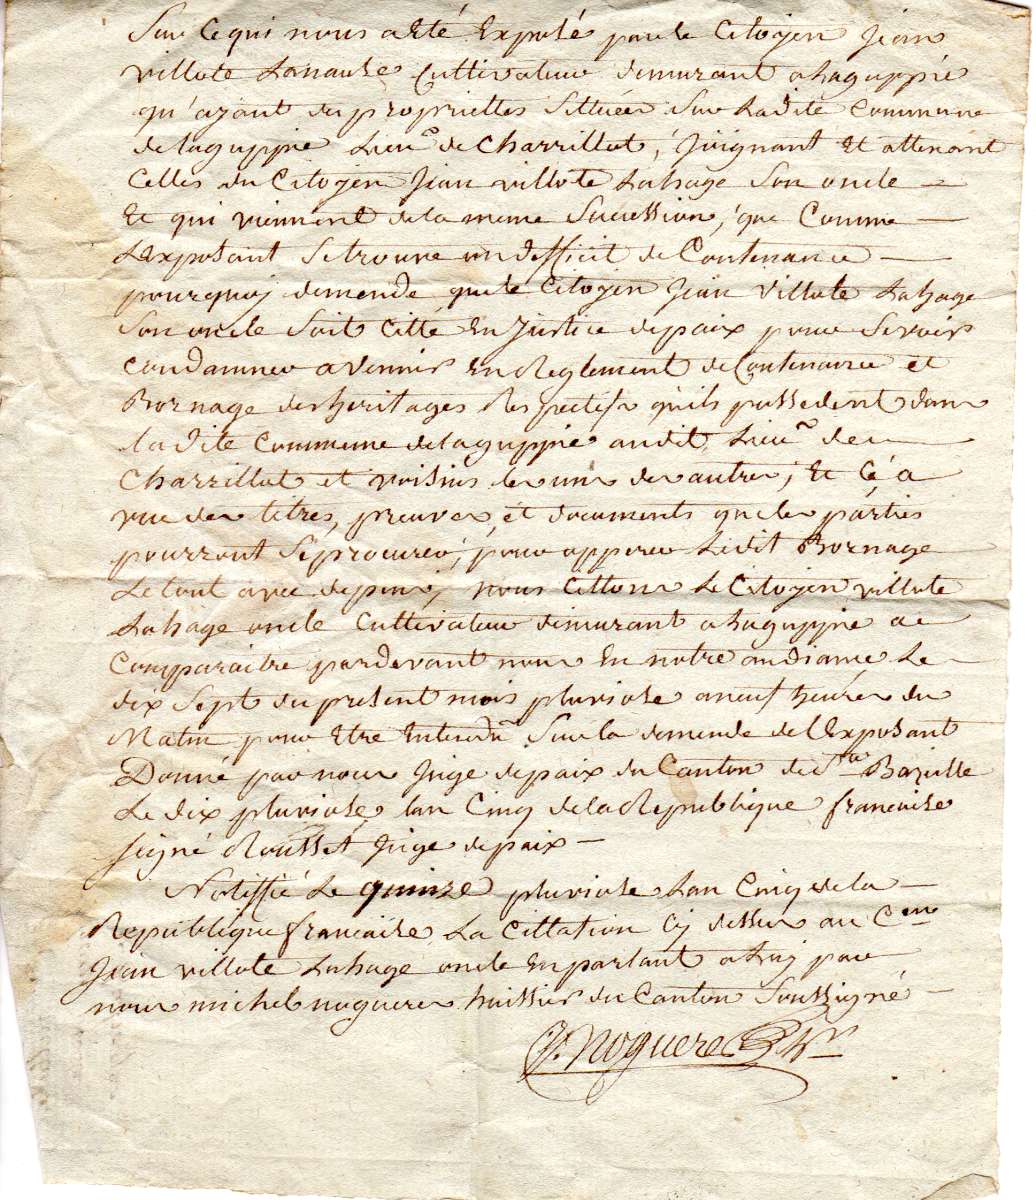 Sur Ce qui nous a Eté Exposé par le Citoyen Jean
villote Lanause Cultivateur demurant a Laguppie
qu'ayant des proprielles Sittuées Sur Ladite Commune
de laguppie Lieu de Charrillot, Joignant Et attenant
Celles du Citoyen Jean villote Lahage Son oncle —
Et qui viennent de la meme Succession, que Comme —
L'Exposant Se trouve un defficit de Contenance —
pourquoy demende que le Citoyen Jean Villote Lahage
Son oncle Soit Citté En Justice de paix pour Se voir
Condamner a venir En Reglement de Contenance et
Bornage des heritages Respectifs qu'ils possedent dans
la dite Commune de laguppie audit Lieu de
Charrillot et voisins les uns des autres, Et Ce a
vue des titres, preuves, et documents que les parties
pourront Se procurer, pour opperer Ledit Bornage
Le tout avec depens, nous Cittons Le Citoyen villote
Lahage oncle Cultivateur demurant a Laguppie a
Comparaitre pardevant nous En notre audiance Le —
dix Sept du present mois pluviose a neuf heures du
Matin pour Etre Entendu Sur la demende de l'Exposant
Donné par nous Juge de paix du Canton de Ste Bazeille
Le dix pluviose lan Cinq de la Republique francaise
signé Rousset Juge de paix —
Notiffié Le quinze pluviose Lan Cinq de la —
Republique francaise La Cittation Cy dessus au Cen
Jean villote Lahage oncle En parlant a Luy par
nous michel nogueres huissier du Canton Soussigné —
Nogueres hr